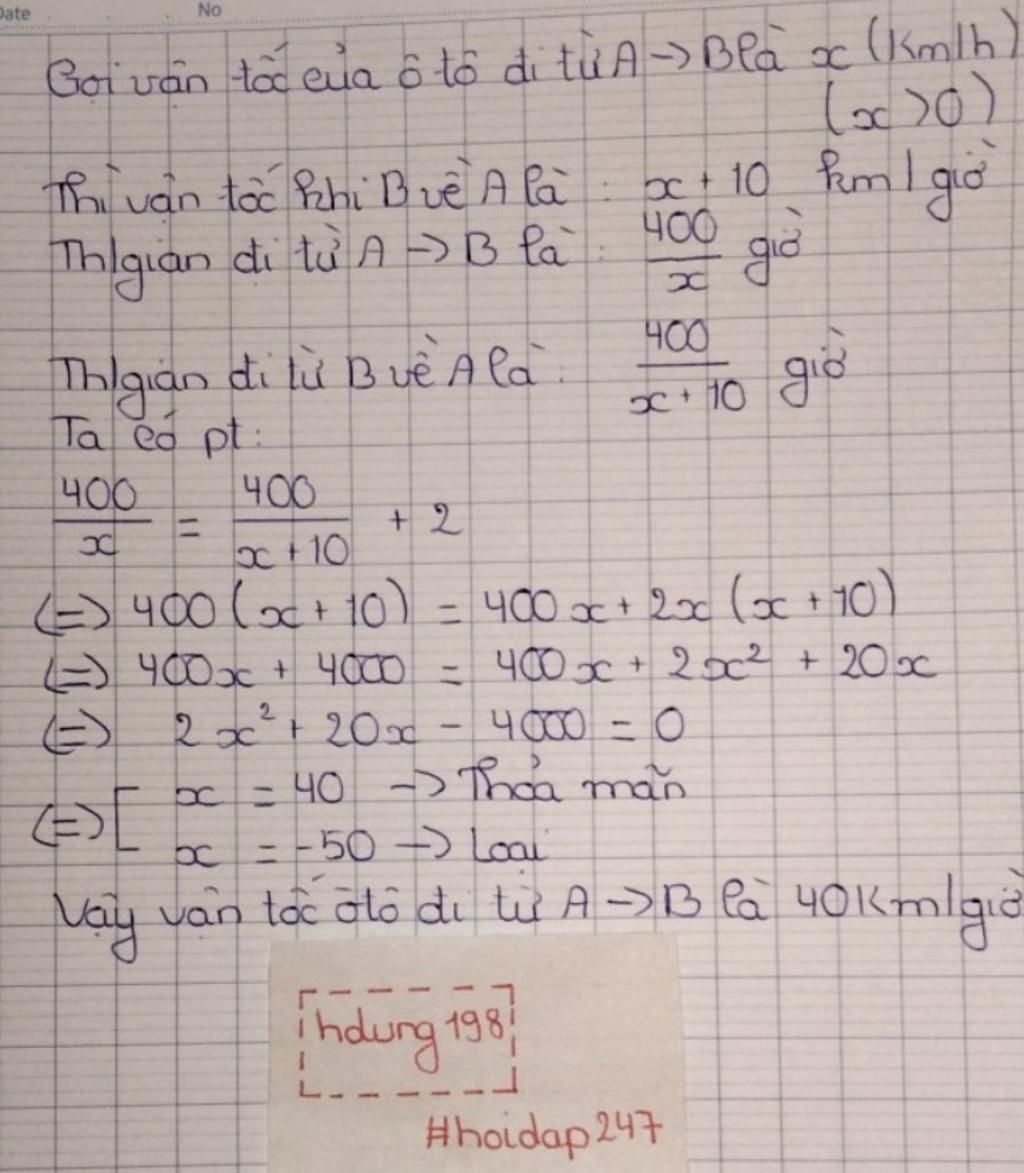 Date No
Gọi vận tốc của ô tô đi từ A → B là x (Km/h)
(x > 0)
Thì vận tốc khi B về A là : x + 10 km/giờ
Th/gian đi từ A → B là : 400/x giờ
Th/gian đi từ B về A là : 400/(x + 10) giờ
Ta có pt :
400/x = 400/(x + 10) + 2
(=) 400 (x + 10) = 400x + 2x (x + 10)
(=) 400x + 4000 = 400x + 2x² + 20x
(=) 2x² + 20x - 4000 = 0
(=) [ x = 40 → Thỏa mãn
x = -50 → Loại
Vậy vận tốc ôtô đi từ A → B là 40Km/giờ
hdung198
#hoidap247